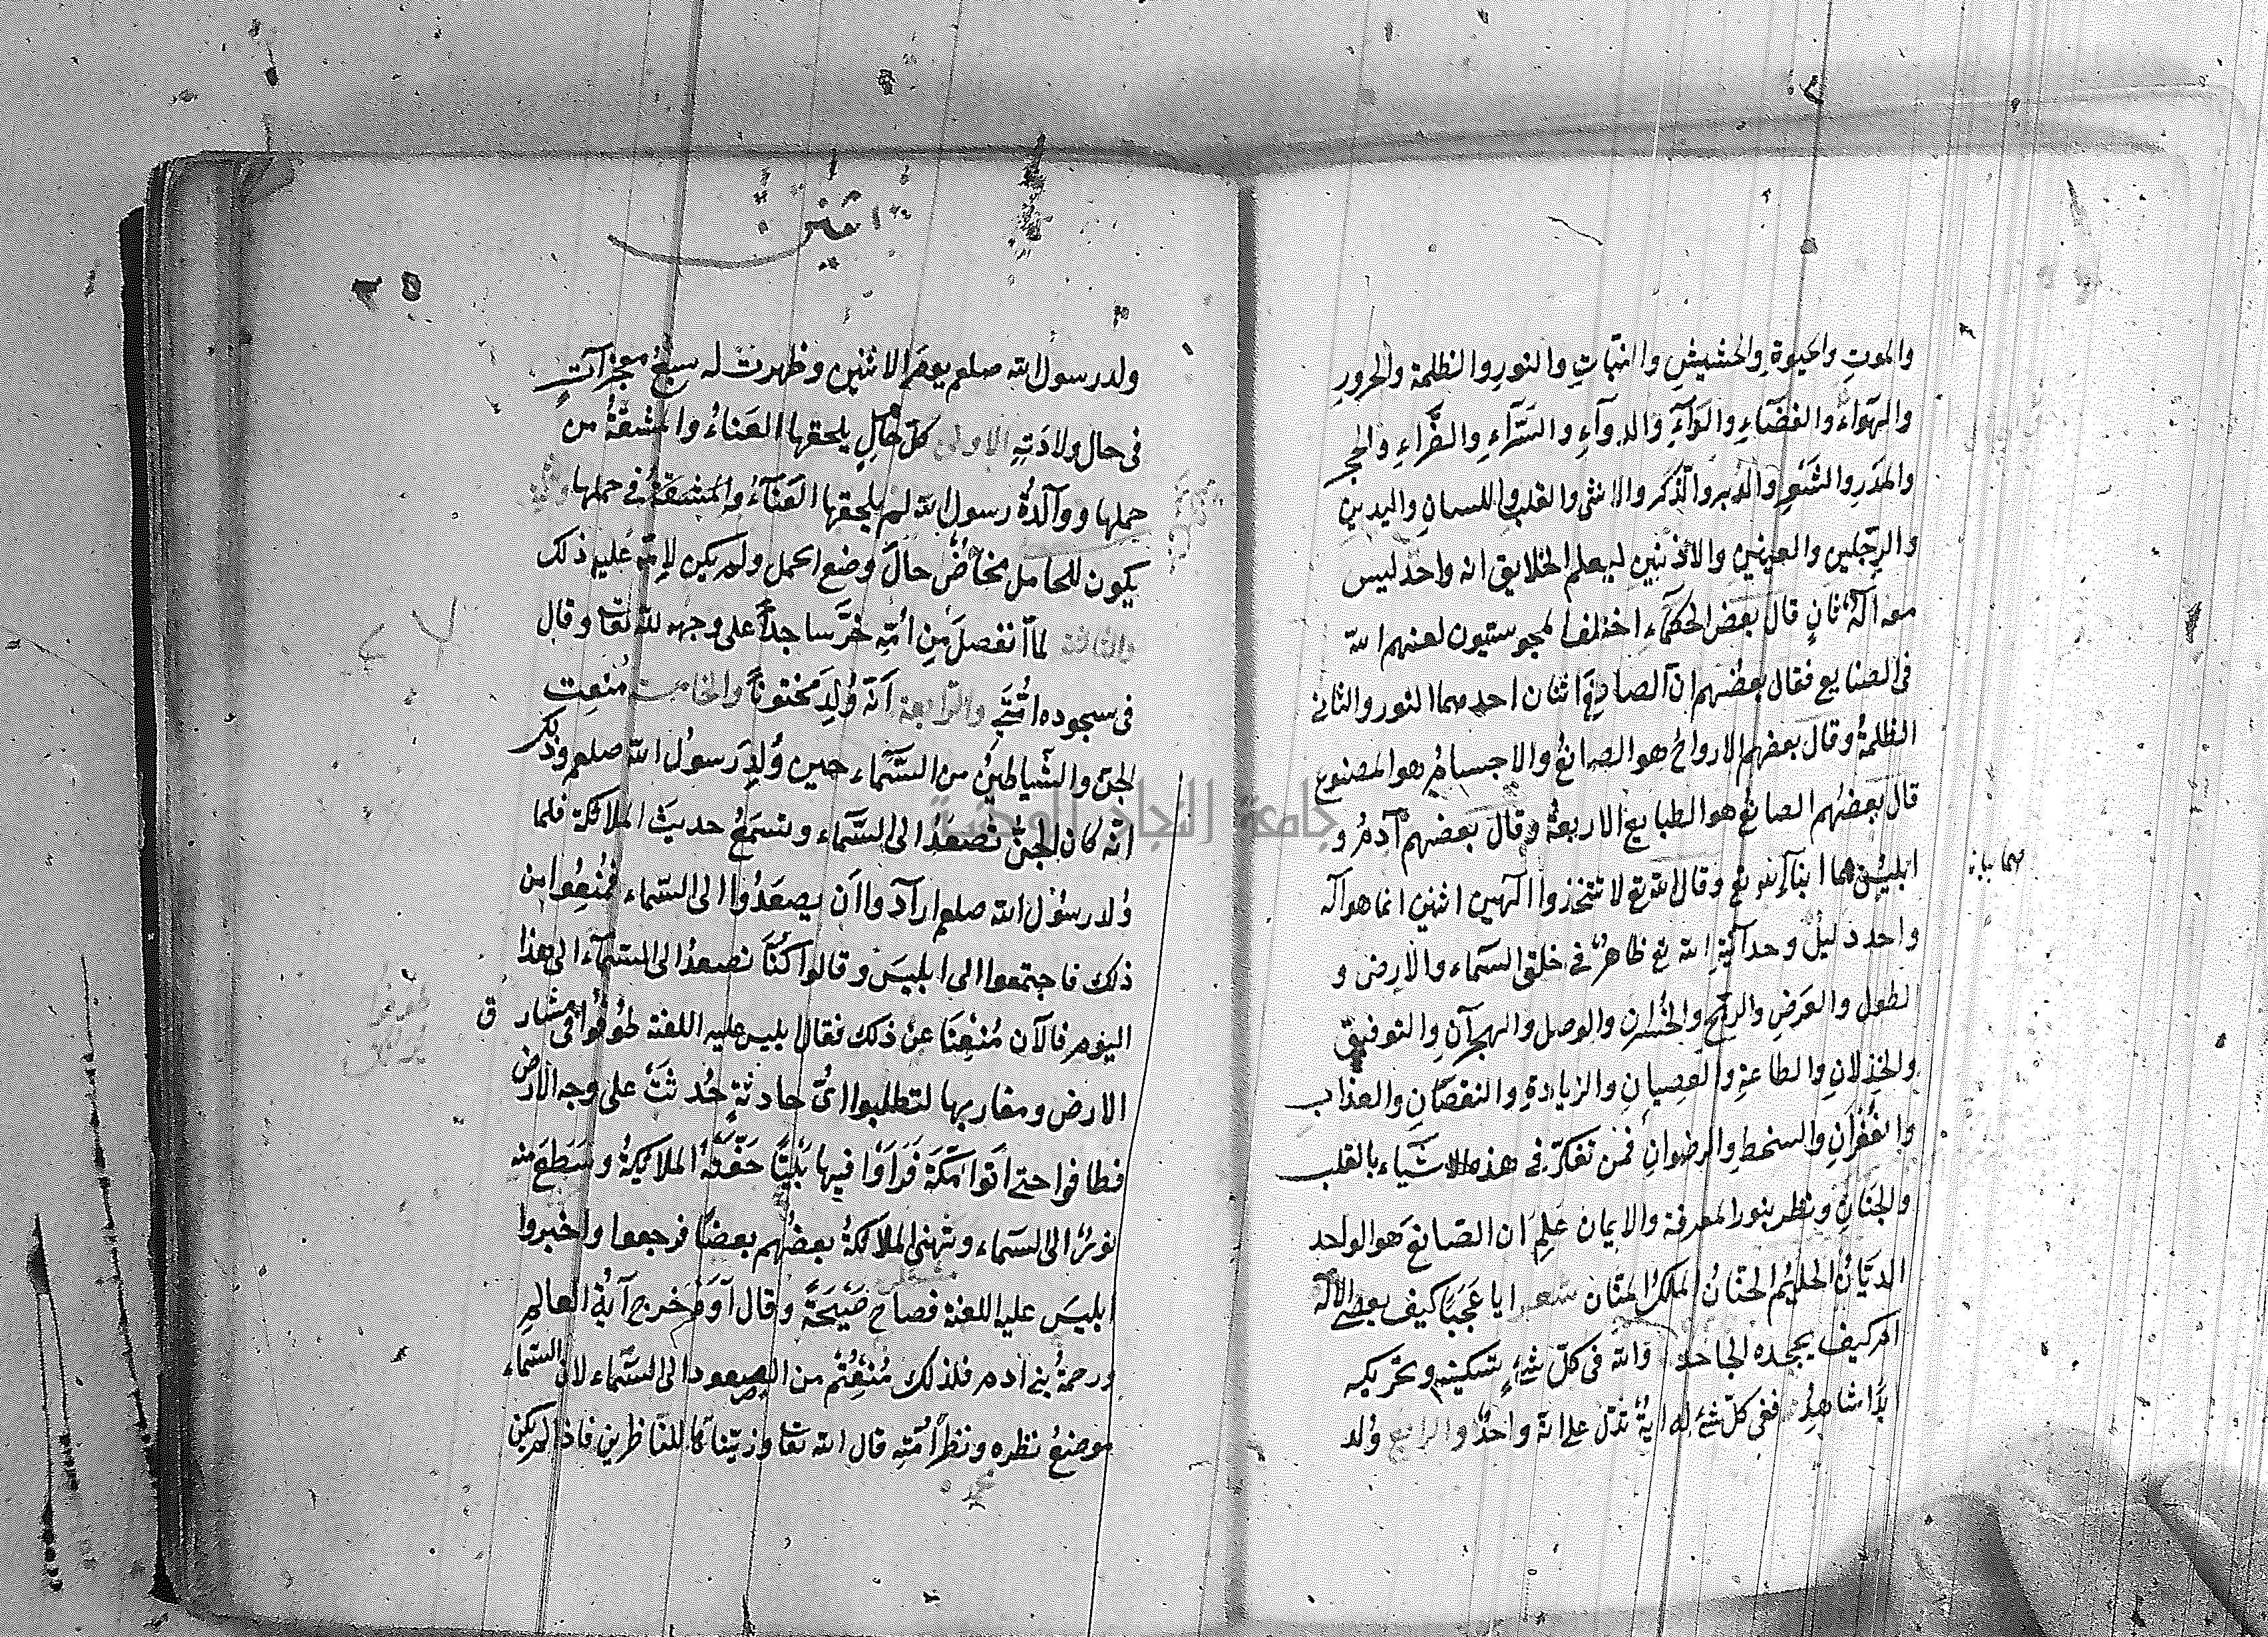 والموتِ والحيوةِ والحشيشِ والنّباتِ والنورِ والظلمة والحرورِ
والهوَاءِ والفضَاءِ والدّوآءِ والسّرّآءِ والضّرّاءِ والحجرِ
والمدَرِ والشَّعرِ والدُبر والذّكر والانثى والقلب واللسانِ واليدينِ
والرِّجلين والعينين والاذنين ليعلم الخلايق انه واحد ليس
معه آلهٌ ثانٍ قال بعض الحكمآء اختلف المجوسيّون لعنهم الله
فى الصنايع فقال بعضهم انّ الصانعَ اثنان احدهما النور والثانى
الظلمةُ وقال بعضهم الارواحُ هو الصانعُ والاجسامُ هو المصنوع
قال بعضهم الصانع هو الطبايع الاربعةُ وقال بعضهم آدمُ و
ابليسُ هما ابنا الله تع وقال الله تع لا تتخذوا الهين اثنين انما هو آله
واحد دليلُ وحدآنيّةِ الله تع ظاهرٌ فى خلق السّماء والارض و
الطول والعَرضِ والرّبح والخُسران والوصل والهجرآنِ والتوفيقِ
والخِذلانِ والطاعةِ والعصيانِ والزيادةِ والنقصَانِ والعذاب
والغفرانِ والسخط والرضوانِ فمن تفكرّ فى هذه الاشيَاء بالقلب
والجنَانِ ونظر بنور المعرفة والايمان عَلِمَ ان الصّانعَ هو الواحد
الديّانُ الحليمُ الحنّانُ الملكُ المنّان شعر ايا عَجَبًا كيف يعصى الاله
ام كيف يجحده الجاحد ولله فى كلّ شئٍ تسكينه وتحريكه
ابدًا شاهدٌ ففى كلّ شئ له ايةٌ تدلّ على انه واحدٌ والرابع وُلد
مهما بيان
اثنين
٢٥
ولد رسول الله صلعم يومَ الاثنين وظهرت له سبعُ معجزآتٍ
فى حال ولادَتِهِ الاولى كلّ حاملٍ يلحقها العَناءُ والمشقّةُ من
حملها ووآلدةُ رسول الله لم يلحقها العَنآءُ والمشقّةُ فى حملها
يكون للحامل مخاضٌ حالَ وضع الحمل ولم يكن لاِمّه عليه ذلك
والثالثة لمّا انفصلَ مِن اُمّهِ خَرَّ ساجدًا على وجهه لله تعا وقال
فى سجوده امّتى والرّابعة انّه وُلِدَ مختونًا والخامسة مُنعِت
الجنّ والشّياطينُ من السّماء حين وُلِدَ رسول الله صلعم وذلك
انّه كان الجنّ تصعَدُ الى السّماء وتسمَعُ حديثَ الملائكة فلما
وُلد رسُول الله صلعم ارآدوا اَن يصعَدُوا الى السّماء فمُنِعُوا من
ذلك فاجتمعوا الى ابليسَ وقالوا كُنّا نصعدُ الى السّمآء الى هذا
اليوم فالآن مُنِعنَا عن ذلك فقال ابليس عليه اللعنة طُوفُوا فى مشارق
الارض ومغاربها لتطلبوا اىّ حادثةٍ حَدثت على وجه الارض
فطافوا حتى اَتَوا مَكّة فَرَاَوا فيها بَيتًا حَفَّتهُ الملائِكةُ وسَطَعَ منه
نورٌ الى السّماء وتهنى الملائكةُ بعضُهم بعضًا فرجعوا واخبروا
ابليسَ عليه اللعنة فصاح صَيْحَةً وقال آوّه خرج آيةُ العالمِ
ورحمةُ بنى ادم فلذلك مُنِعتُم من الصعود الى السّماء لان السّماء
موضعُ نظره ونظرُ اُمّتِه قال الله تعا وزيّنّاها للنّاظرين فاذا لم يكن
جامعة النجاح الوطنية